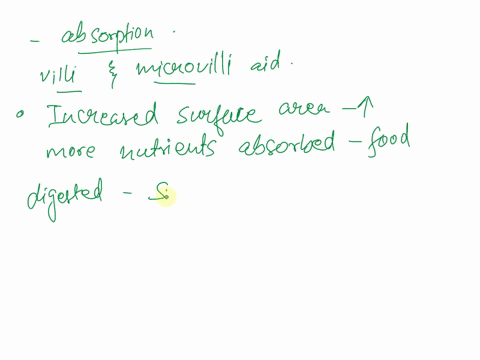 - absorption.
villi & microvilli aid.
• Increased surface area - ↑
more nutrients absorbed - food
digested - S